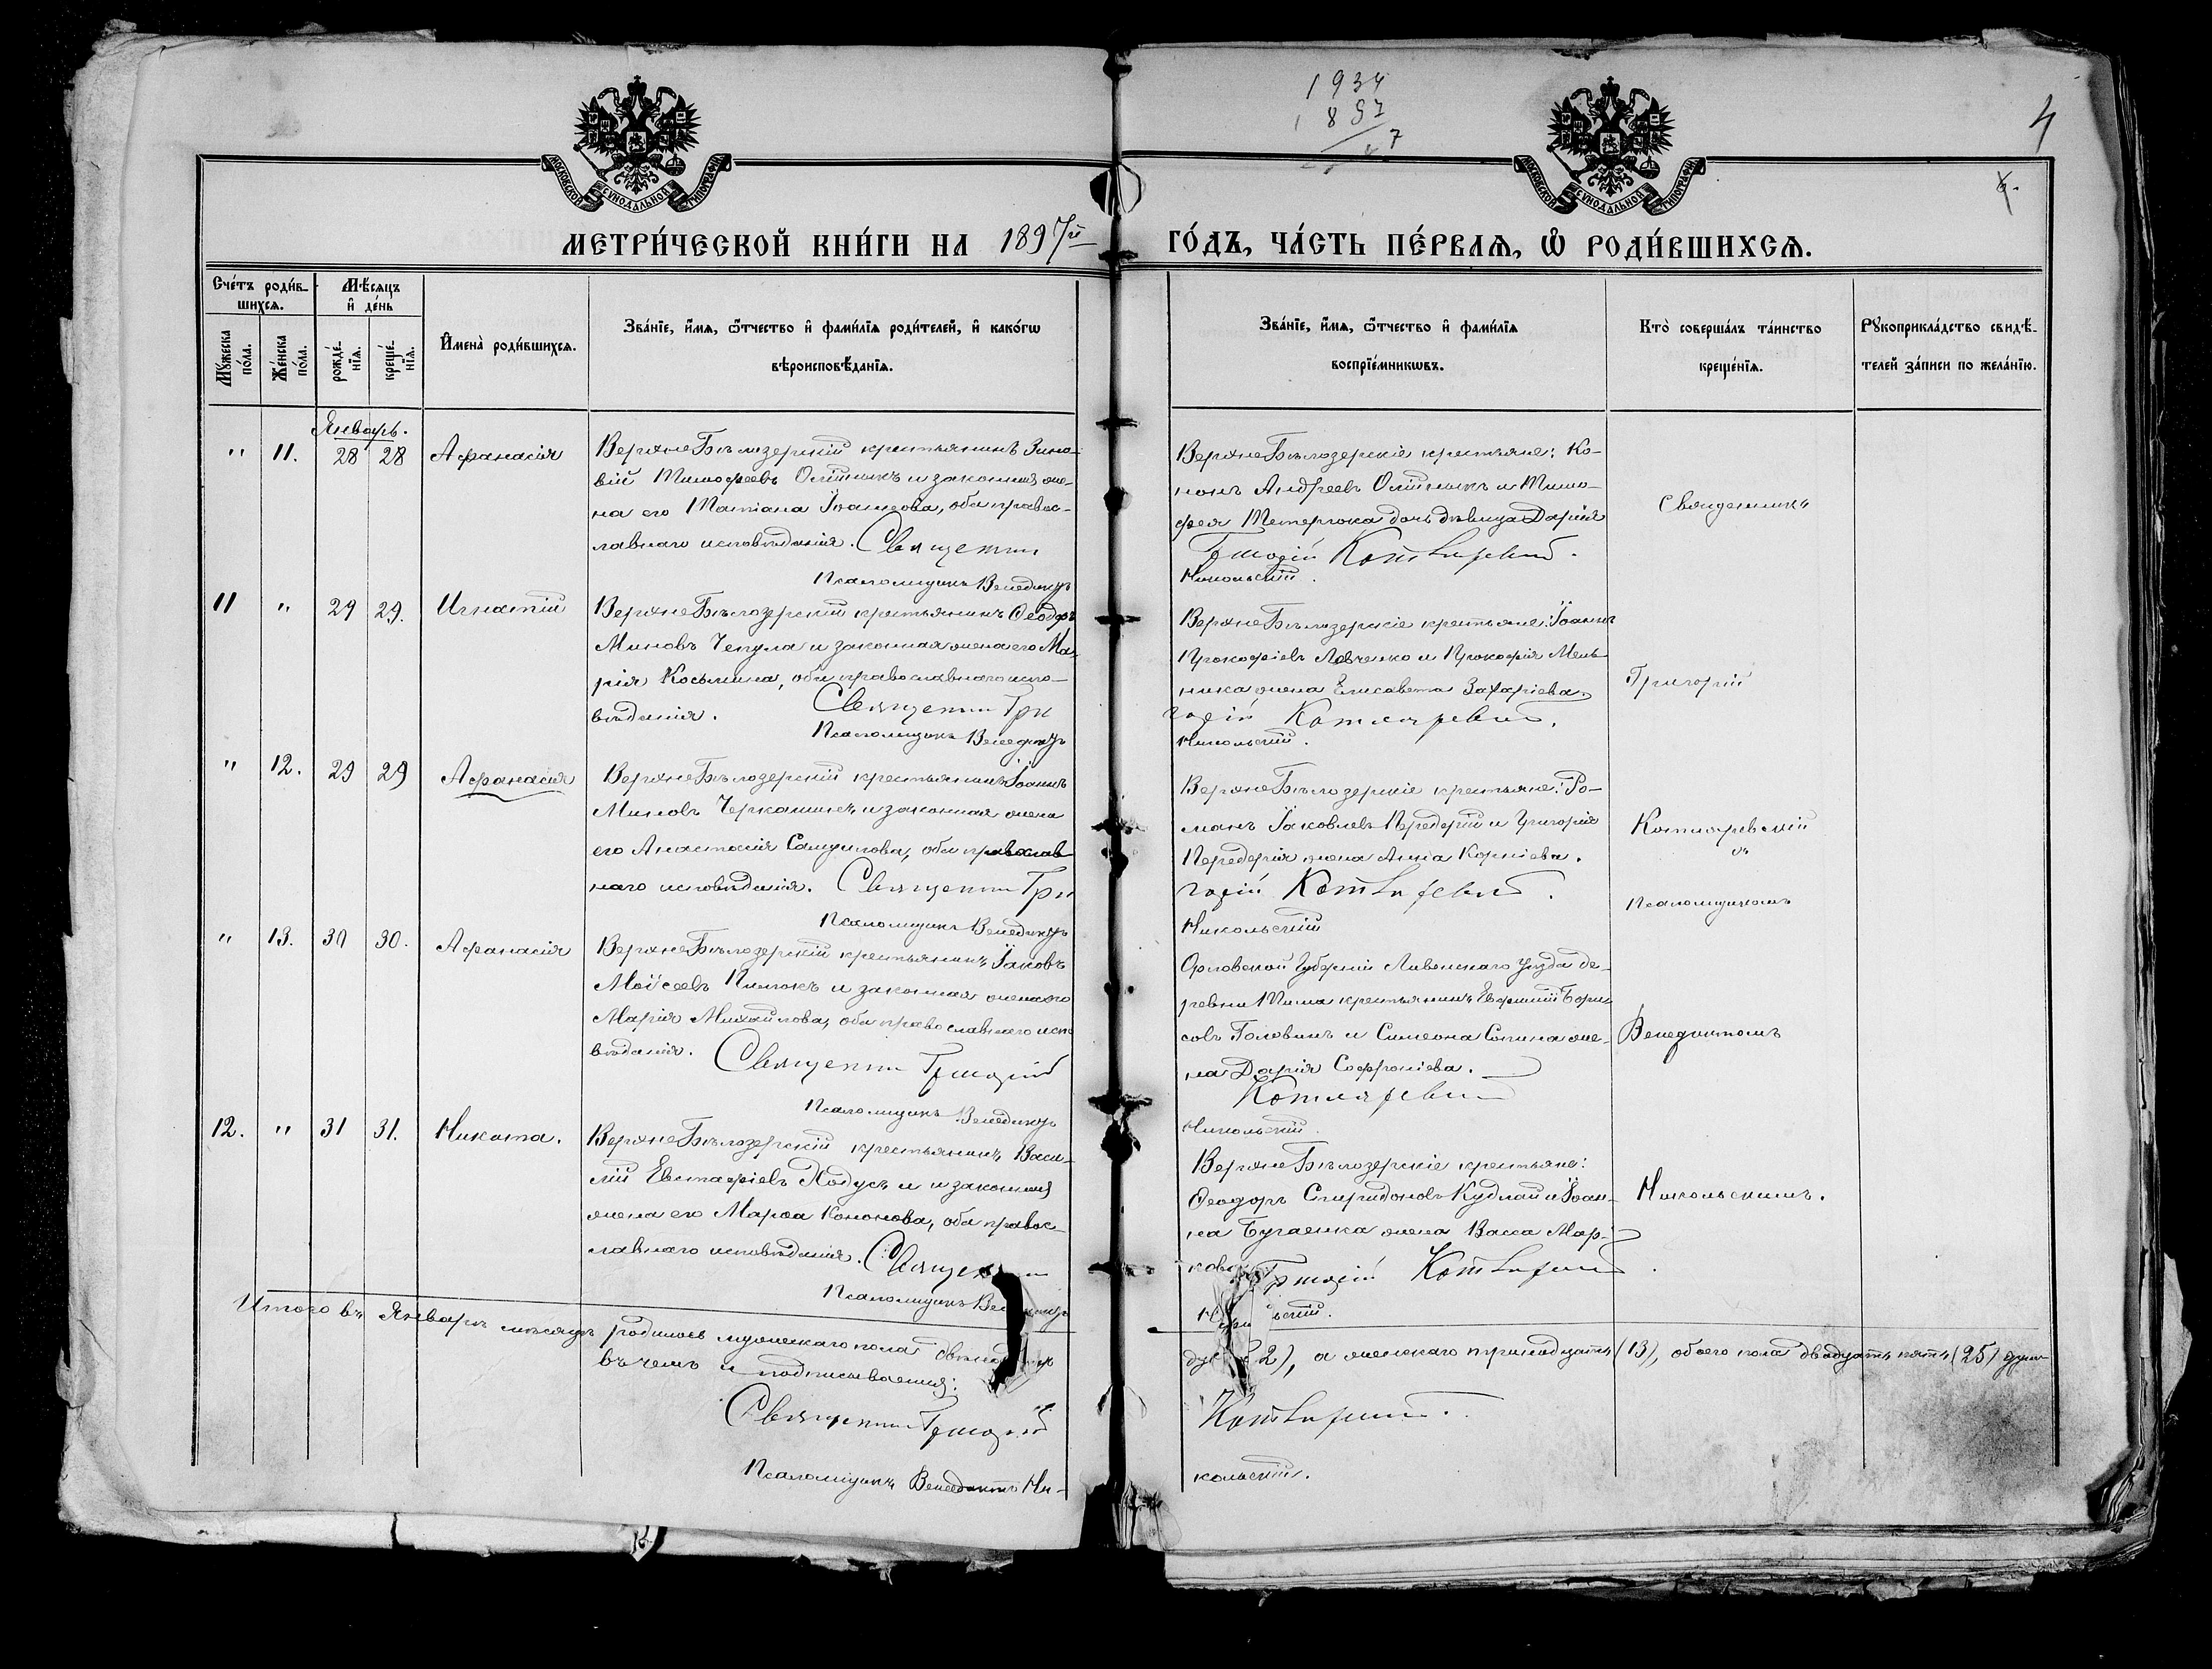 1934
1897
7
4
МОСКОВСКОЙ СѴНОДАЛЬНОЙ ТИПОГРАФІИ
МОСКОВСКОЙ СѴНОДАЛЬНОЙ ТИПОГРАФІИ
МЕТРИ́ЧЕСКОЙ КНИ́ГИ НА 1897й
ГО́ДЪ, ЧА́СТЬ ПЕ́РВАѦ, Ѽ РОДИ́ВШИХСѦ.
Сче́тъ роди́в-
шихсѧ.
Мѣ́сѧцъ
и҆ де́нь
Мꙋ́жеска
по́ла.
Же́нска
по́ла.
рожде́-
нїѧ.
креще́-
нїѧ.
И҆мена̀ роди́вшихсѧ.
Зва́нїе, и҆́мѧ, ѻ҆́тчество и҆ фами́лїѧ роди́телей, и҆ како́гѡ
вѣроисповѣ́данїѧ.
Зва́нїе, и҆́мѧ, ѻ҆́тчество и҆ фами́лїѧ
воспрїе́мникѡвъ.
Кто̀ соверша́лъ та́инство
креще́нїѧ.
Рꙋкоприкла́дство свидѣ́-
телей за́писи по жела́нїю.
Январь.
" 11. 28 28 Афанасія
ВерхнеБѣлозерскій крестьянинъ Зино-
вій Тимофеевъ Олійникъ и законная же-
на его Татіана Іоаннова, оба правос-
лавнаго исповѣданія. Священни
Псаломщикъ Венедиктъ
ВерхнеБѣлозерскіе крестьяне: Ко-
нонъ Андреевъ Олійникъ и Тимо-
фея Тетерюка дочь дѣвица Дарія
Григорій Котляревск
Никольскій.
Священникъ
11 " 29 29. Игнатій
ВерхнеБѣлозерскій крестьянинъ Ѳеодоръ
Миновъ Чепула и законная жена его Ма-
рія Косьмина, оба православнаго испо-
вѣданія. Священни Гри
Псаломщикъ Венедиктъ
ВерхнеБѣлозерскіе крестьяне: Іоаннъ
Прокофіевъ Левченко и Прокофія Мель-
ника жена Елисавета Захаріева.
горій Котляревск.
Никольскій.
Григорій
" 12. 29 29 Афанасія
ВерхнеБѣлозерскій крестьянинъ Іоаннъ
Миновъ Черкашинъ и законная жена
его Анастасія Самуилова, оба православ-
наго исповѣданія. Священни Гри
Псаломщикъ Венедиктъ
ВерхнеБѣлозерскіе крестьяне: Ро-
манъ Іаковлевъ Передерій и Григорія
Передерія жена Анна Корніева.
горій Котляревск.
Никольскій
Котляревскій
съ
Псаломщикомъ
" 13. 30 30. Афанасія
ВерхнеБѣлозерскій крестьянинъ Іаковъ
Моѵсеевъ и законная жена его
Марія Михайлова, оба православнаго испо-
вѣданія. Священни Григорій
Псаломщикъ Венедиктъ
Орловской Губерніи Ливенскаго уѣзда де-
ревни крестьянинъ Евфимій Бори-
совъ Головинъ и Симеона Сопина же-
на Дарія Софроніева.
Котляревск
Никольскій.
Венедиктомъ
12. " 31 31. Никита.
ВерхнеБѣлозерскій крестьянинъ Васи-
лій Евстафіевъ Кодусъ и законная
жена его Марѳа Кононова, оба правос-
лавнаго исповѣданія. Священни
Псаломщикъ
ВерхнеБѣлозерскіе крестьяне:
Ѳеодоръ Спиридоновъ Кудлай и Іоан-
на Бугаенка жена Васса Мар-
кова. Григорій Котляревск.
Никольскимъ.
Итого въ Январѣ мѣсяцѣ родилось мужескаго пола двѣнад
2), а женскаго тринадцать (13), обоего пола двадцать пять (25) душъ
въ чемъ и подписываемся:
Священни Григорій
Котляревск.
Псаломщикъ Венедиктъ Ни-
кольскій.